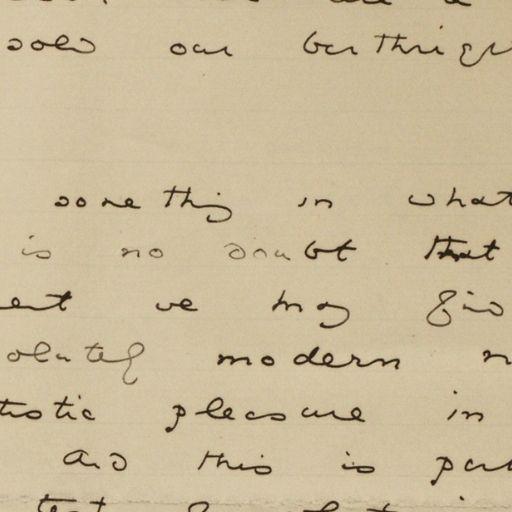 sold our birthrigh
something in what
is no doubt that
ent we may find
olutely modern
tistic pleasure in
and this is par